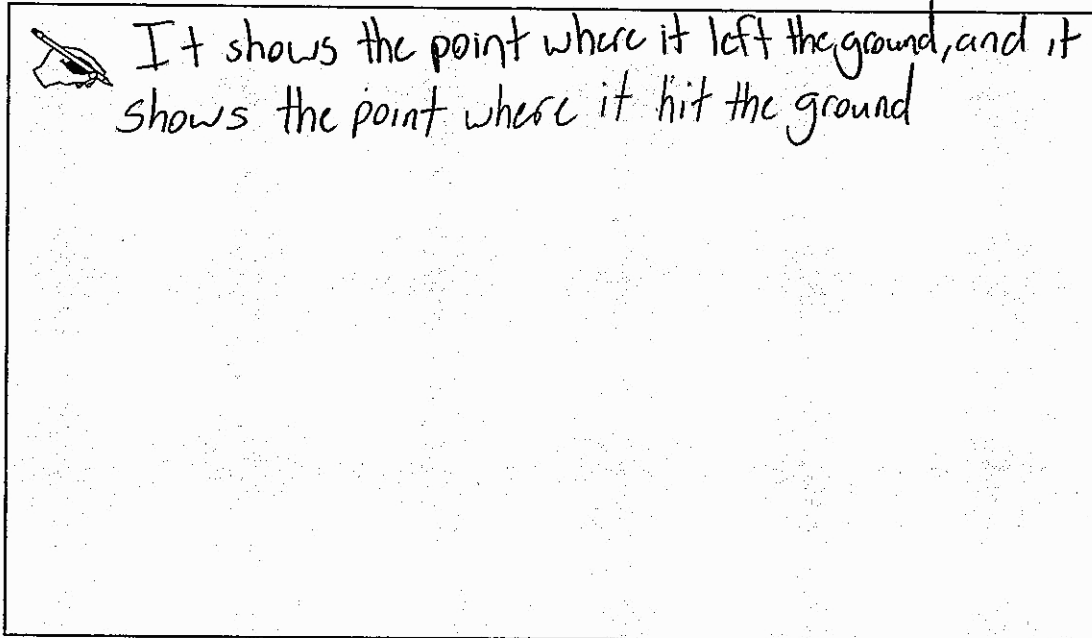 It shows the point where it left the ground, and it
shows the point where it hit the ground